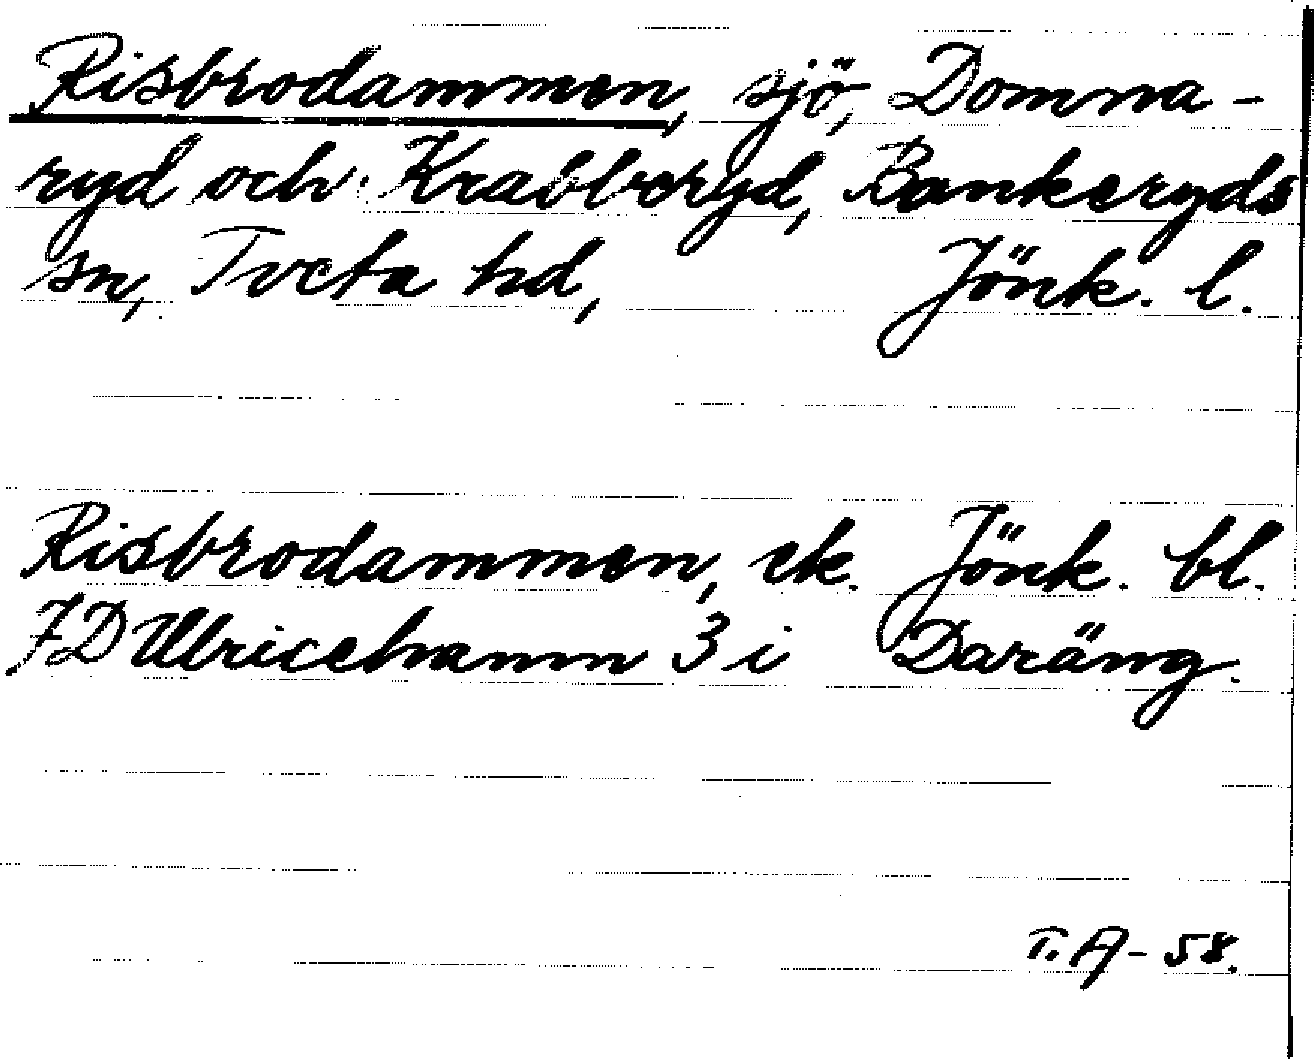 Risbrodammen, sjö, Domna-
ryd och Krabberyd, Bankeryds
sn, Tveta hd, Jönk. l.
Risbrodammen, ek. Jönk. bl.
7D Ulricehamn 3 i Daräng.
T.A-58.